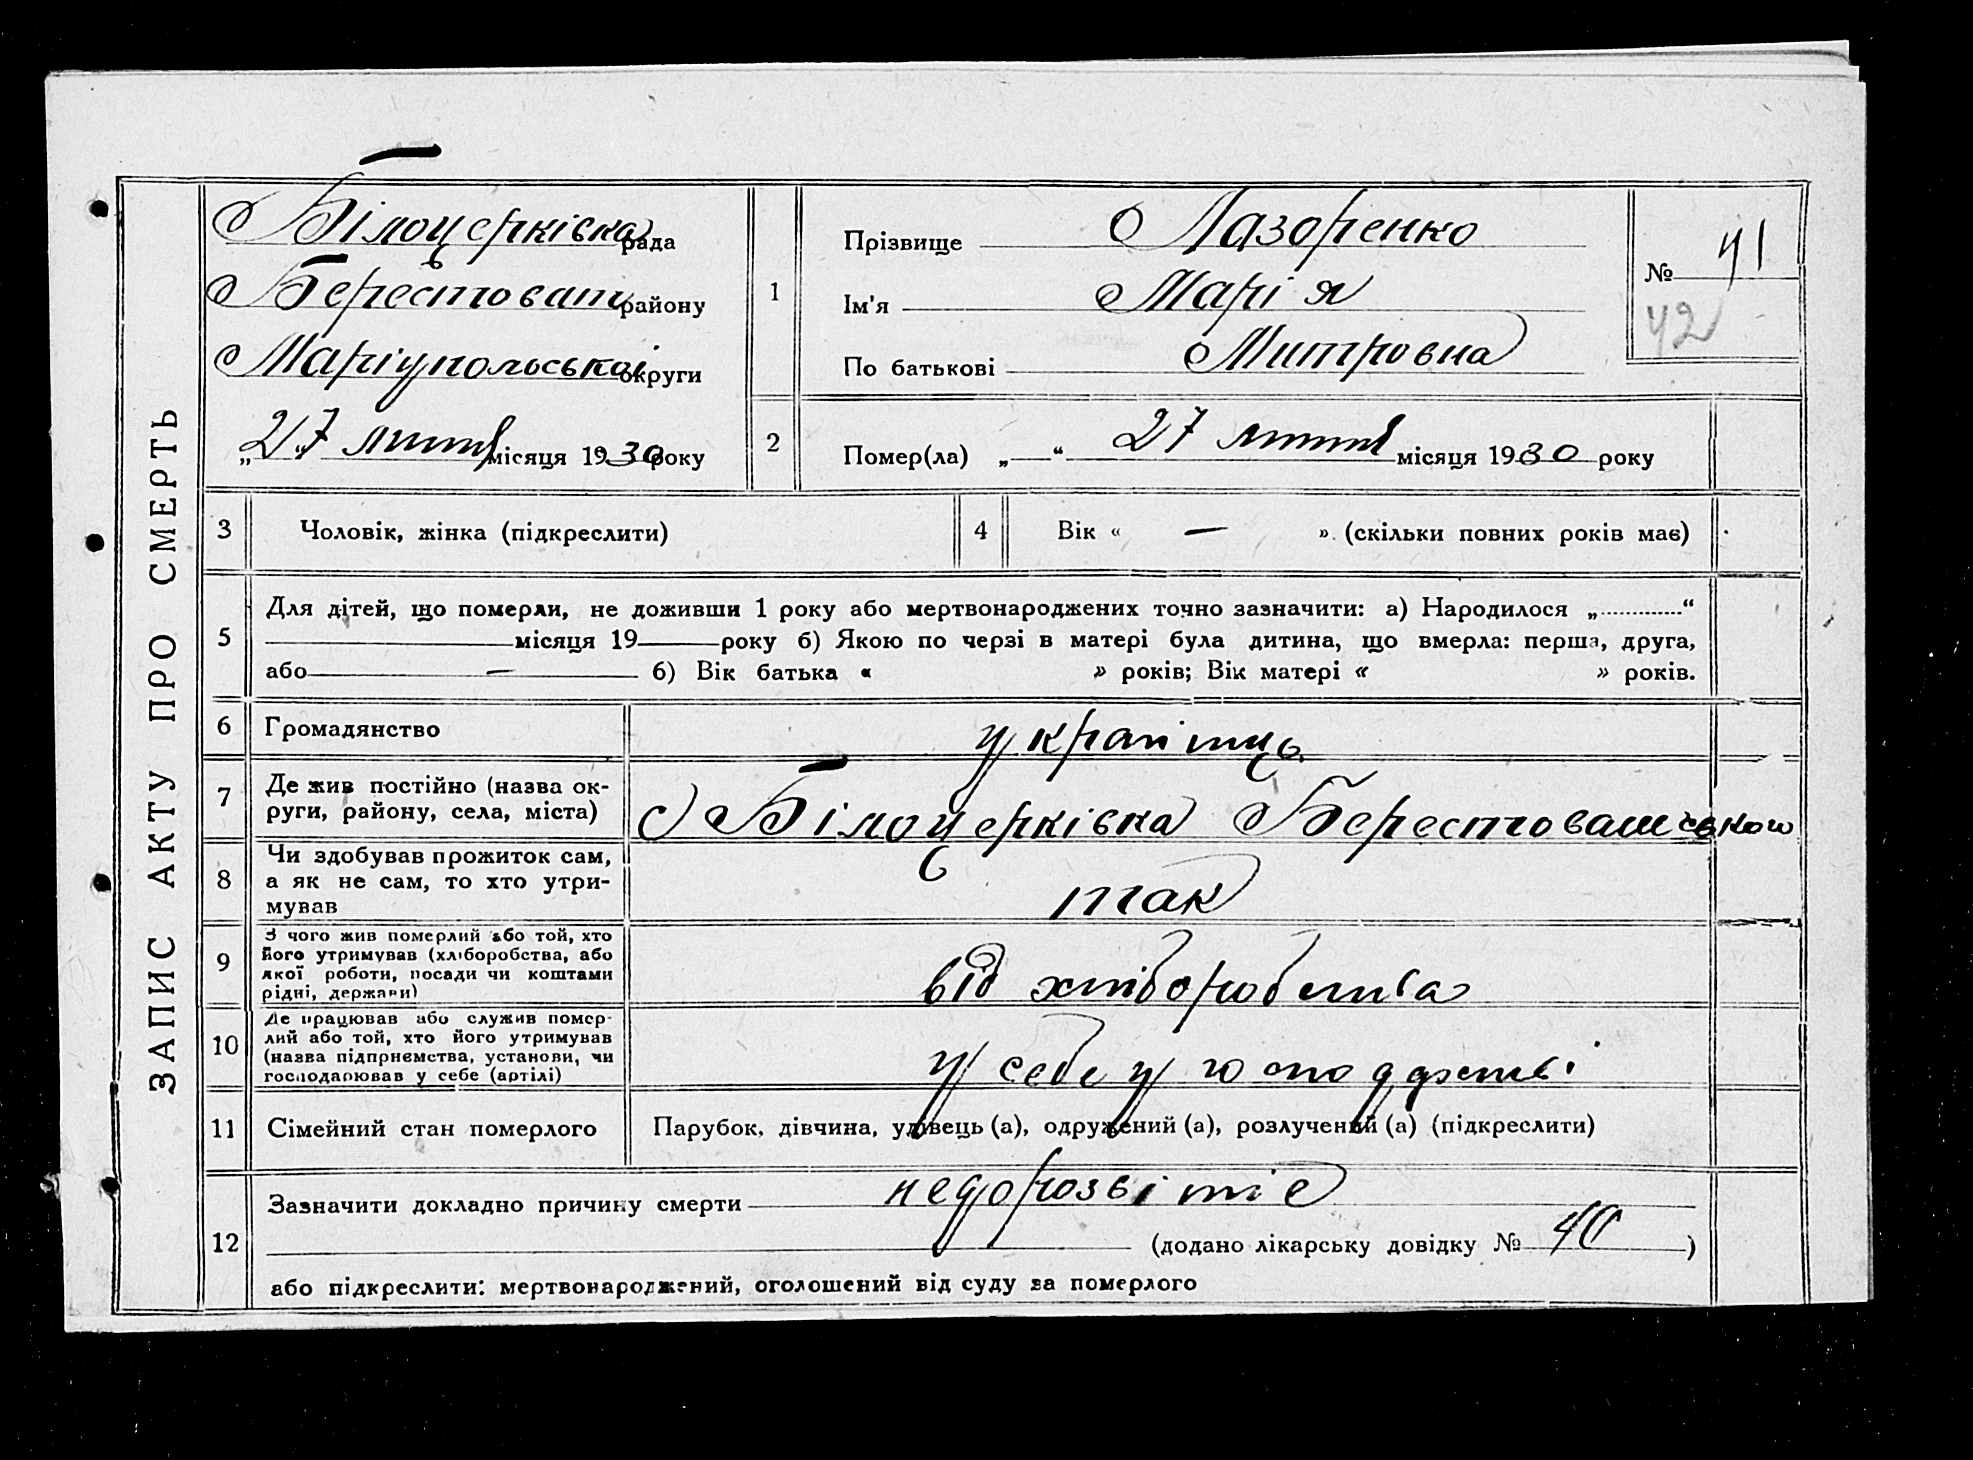 ЗАПИС АКТУ ПРО СМЕРТЬ
Білоцерківка рада
Берестоват району
Маріупольської округи
„27“ лютня місяця 1930 року
1
Прізвище Лазоренко
Ім'я Марія
По батькові Митровна
№ 41
42
2
Помер(ла) „ “ 27 лютня місяця 1930 року
3 Чоловік, жінка (підкреслити)
4 Вік « — » (скільки повних років має)
5
Для дітей, що померли, не доживши 1 року або мертвонароджених точно зазначити: а) Народилося „ “
місяця 19 року б) Якою по черзі в матері була дитина, що вмерла: перша, друга,
або — б) Вік батька « » років; Вік матері « » років.
6 Громадянство українць
7 Де жив постійно (назва ок-
руги, району, села, міста)
с Білоцерківка Берестоватського
8 Чи здобував прожиток сам,
а як не сам, то хто утри-
мував
так
9 З чого жив померлий або той, хто
його утримував (хліборобства, або
якої роботи, посади чи коштами
рідні, держави)
від хліборобства
10 Де працював або служив помер-
лий або той, хто його утримував
(назва підприємства, установи, чи
господарював у себе (артілі)
у себе у господарстві
11 Сімейний стан померлого
Парубок, дівчина, удівець (а), одружений (а), розлучений (а) (підкреслити)
12
Зазначити докладно причину смерти недорозвітіє
(додано лікарську довідку № 40)
або підкреслити: мертвонароджений, оголошений від суду за померлого